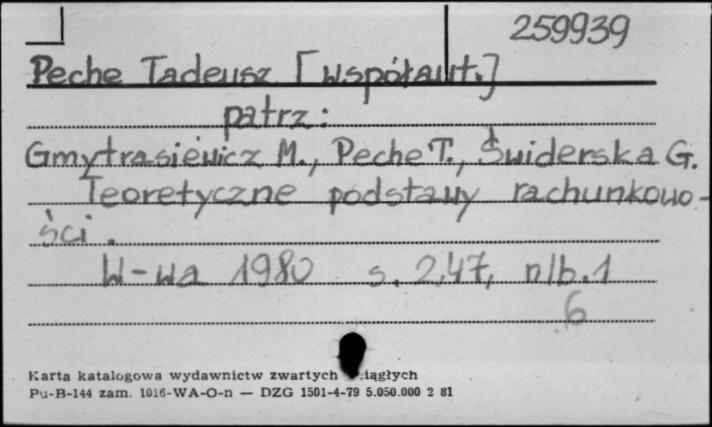 259939
Peche Tadeusz [współaut.]
patrz:
Gmytrasiewicz M., Peche T., Świderska G.
Teoretyczne podstawy rachunkowo-
ści.
W-wa 1980 s. 247, nlb. 1
6
Karta katalogowa wydawnictw zwartych ciągłych
Pu-B-144 zam. 1016-WA-O-n — DZG 1501-4-79 5.050.000 2 81